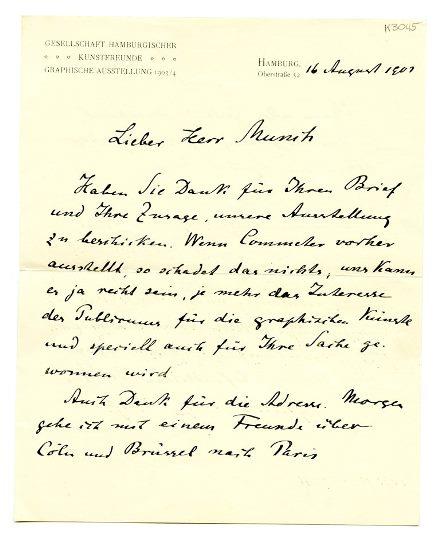 K3045
GESELLSCHAFT HAMBURGISCHER
KUNSTFREUNDE
GRAPHISCHE AUSSTELLUNG 1903/4
HAMBURG,
Oberstraße 52
16 August 1903
Lieber Herr Munch
Haben Sie Dank für Ihren Brief
und Ihre Zusage, unsere Ausstellung
zu beschicken. Wenn Commeter vorher
ausstellt, so schadet das nichts, uns kann
es ja recht sein, je mehr das Interesse
des Publicums für die graphischen Künste
und speciell auch für Ihre Sache ge-
wonnen wird
Auch Dank für die Adresse. Morgen
gehe ich mit einem Freunde über
Cöln und Brüssel nach Paris